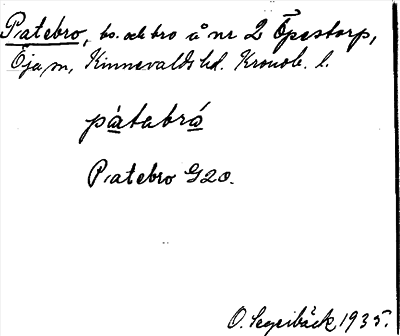 Patebro, bs. och bro å nr 2 Öpestorp,
Öja sn, Kinnevalds hd. Kronob. l.
pàtabrá
Patebro G20.
O. Segerbäck 1935.